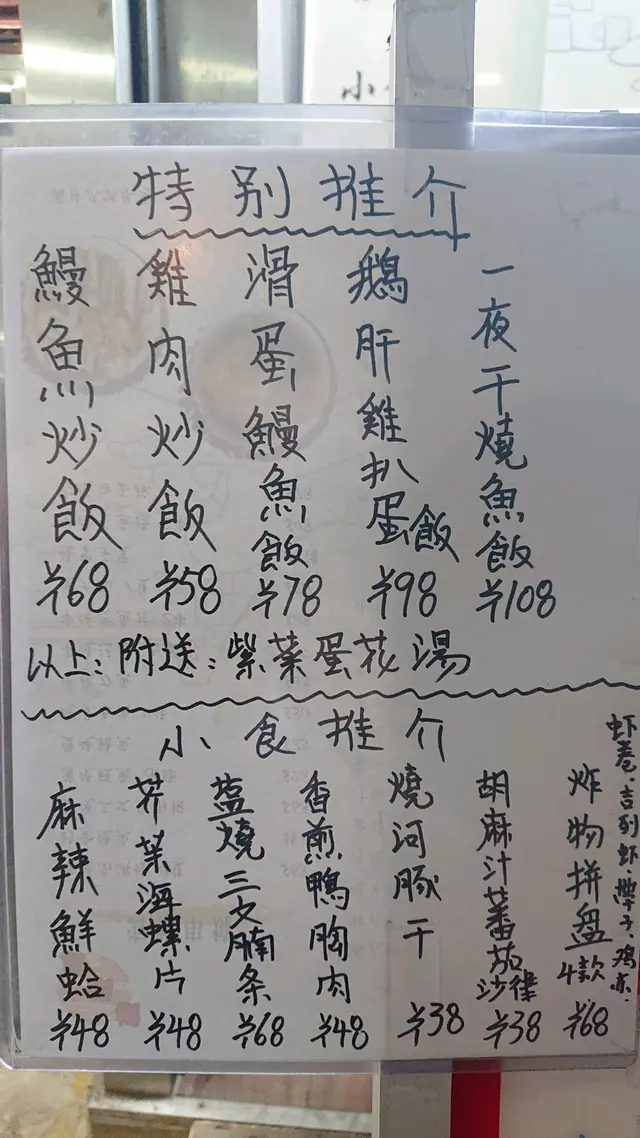 特别推介
鰻魚炒飯 ¥68
雞肉炒飯 ¥58
滑蛋鰻魚飯 ¥78
鵝肝雞扒蛋飯 ¥98
一夜干燒魚飯 ¥108
以上：附送：紫菜蛋花湯
小食推介
麻辣鮮蛤 ¥48
芥菜海螺片 ¥48
盐燒三文腩条 ¥68
香煎鴨胸肉 ¥48
燒河豚干 ¥38
胡麻汁蕃茄沙律 ¥38
炸物拼盘4款 ¥68
虾卷.吉列虾.
小